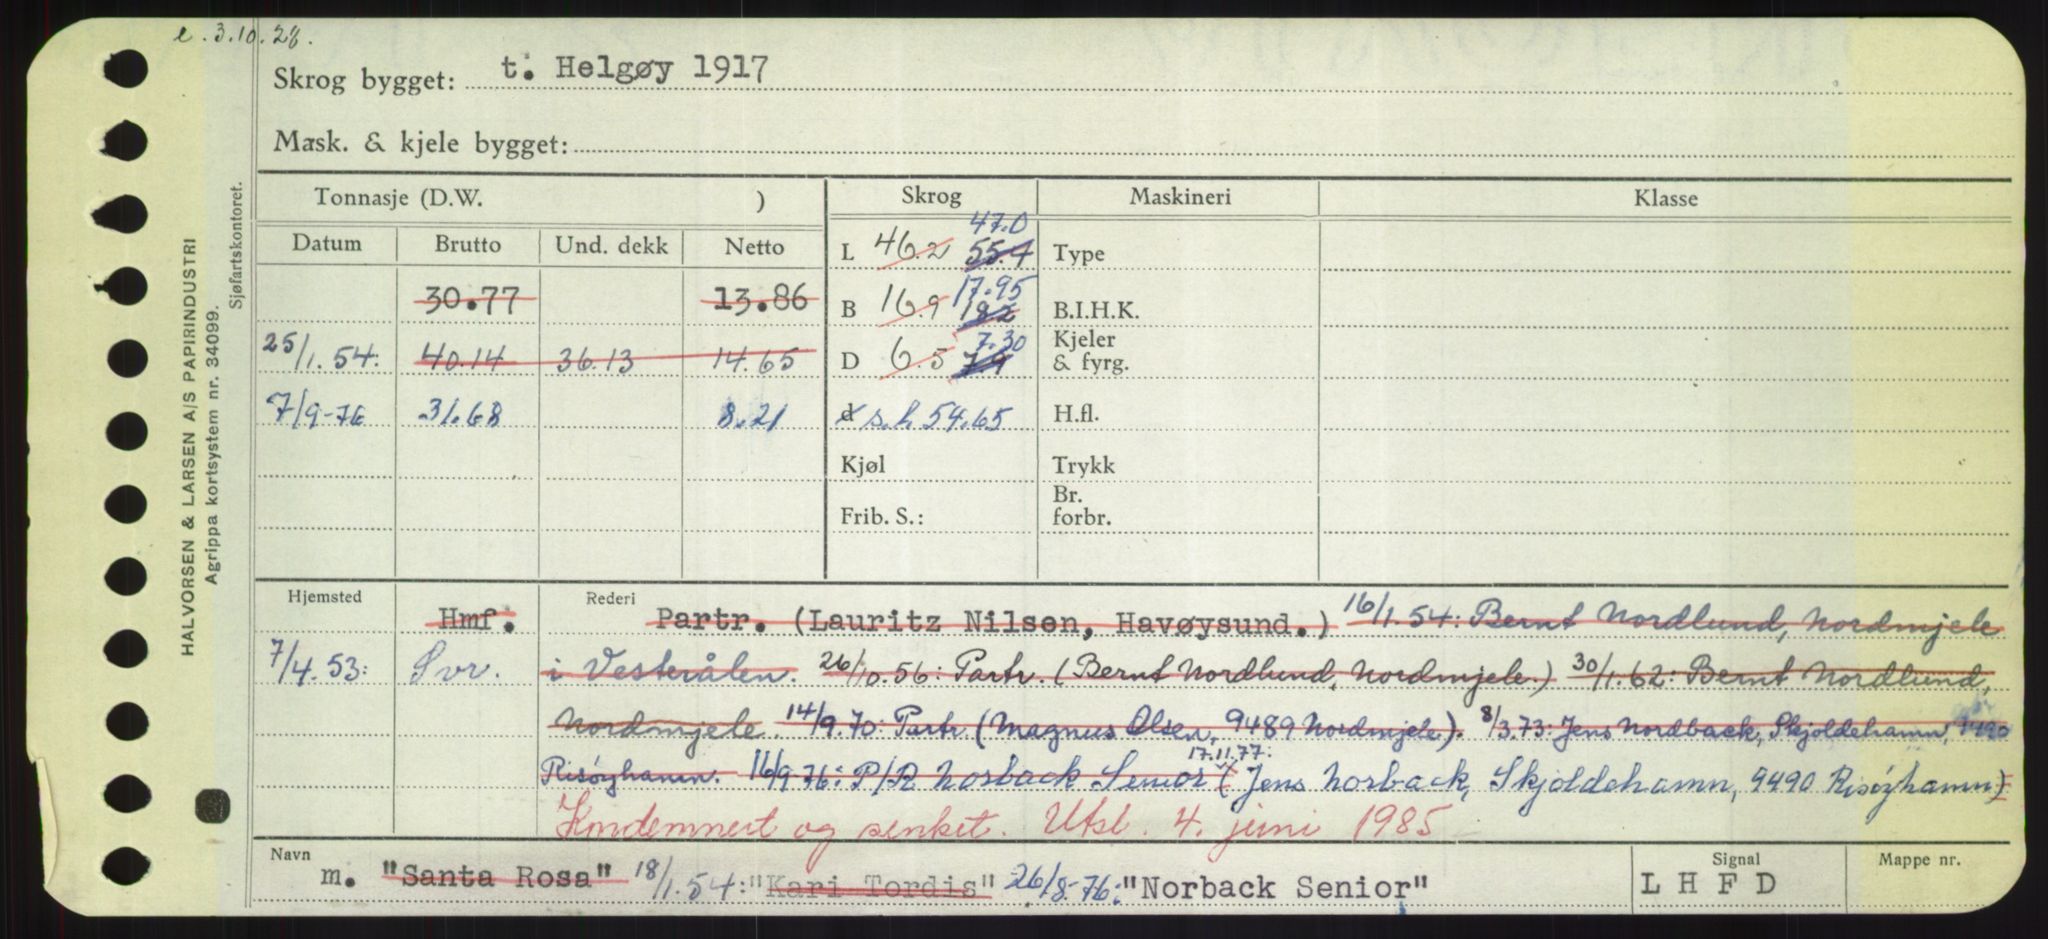 e. 3.10.28.
Skrog bygget: t. Helgøy 1917
Mask. & kjele bygget:
HALVORSEN & LARSEN A/S PAPIRINDUSTRI
Agrippa kortsystem nr. 34099.
Sjøfartskontoret.
Tonnasje (D.W. ) Skrog Maskineri Klasse
Datum Brutto Und. dekk Netto
47.0
L 46.2 55.4 Type
30.77 13.86
17.95
B 16.9 18.2 B.I.H.K.
25/1.54: 40.14 36.13 14.65
7.30
D 6.5 7.9 Kjeler & fyrg.
7/9-76 31.68 8.21 d s.h 54.65 H.fl.
Kjøl Trykk
Frib. S.: Br. forbr.
Hjemsted Rederi
Hmf. Partr. (Lauritz Nilsen, Havøysund.) 16/1.54: Bernt Nordlund, Nordmjele
7/4.53: Svr. i Vesterålen. 26/10.56: Partr. (Bernt Nordlund, Nordmjele.) 30/1.62: Bernt Nordlund,
Nordmjele. 14/9.70: Partr (Magnus Olsen, 9489 Nordmjele). 8/3.73: Jens Nordback, Skjoldehamn, 9490
17.11.77.
Risøyhamn. 16/9.76: P/R Norback Senior (Jens Norback, Skjoldehamn, 9490 Risøyhamn)
Kondemnert og senket. Utsl. 4. juni 1985
Navn Signal Mappe nr.
m. "Santa Rosa" 18/1.54: "Kari Tordis" 26/8-76: "Norback Senior" L H F D